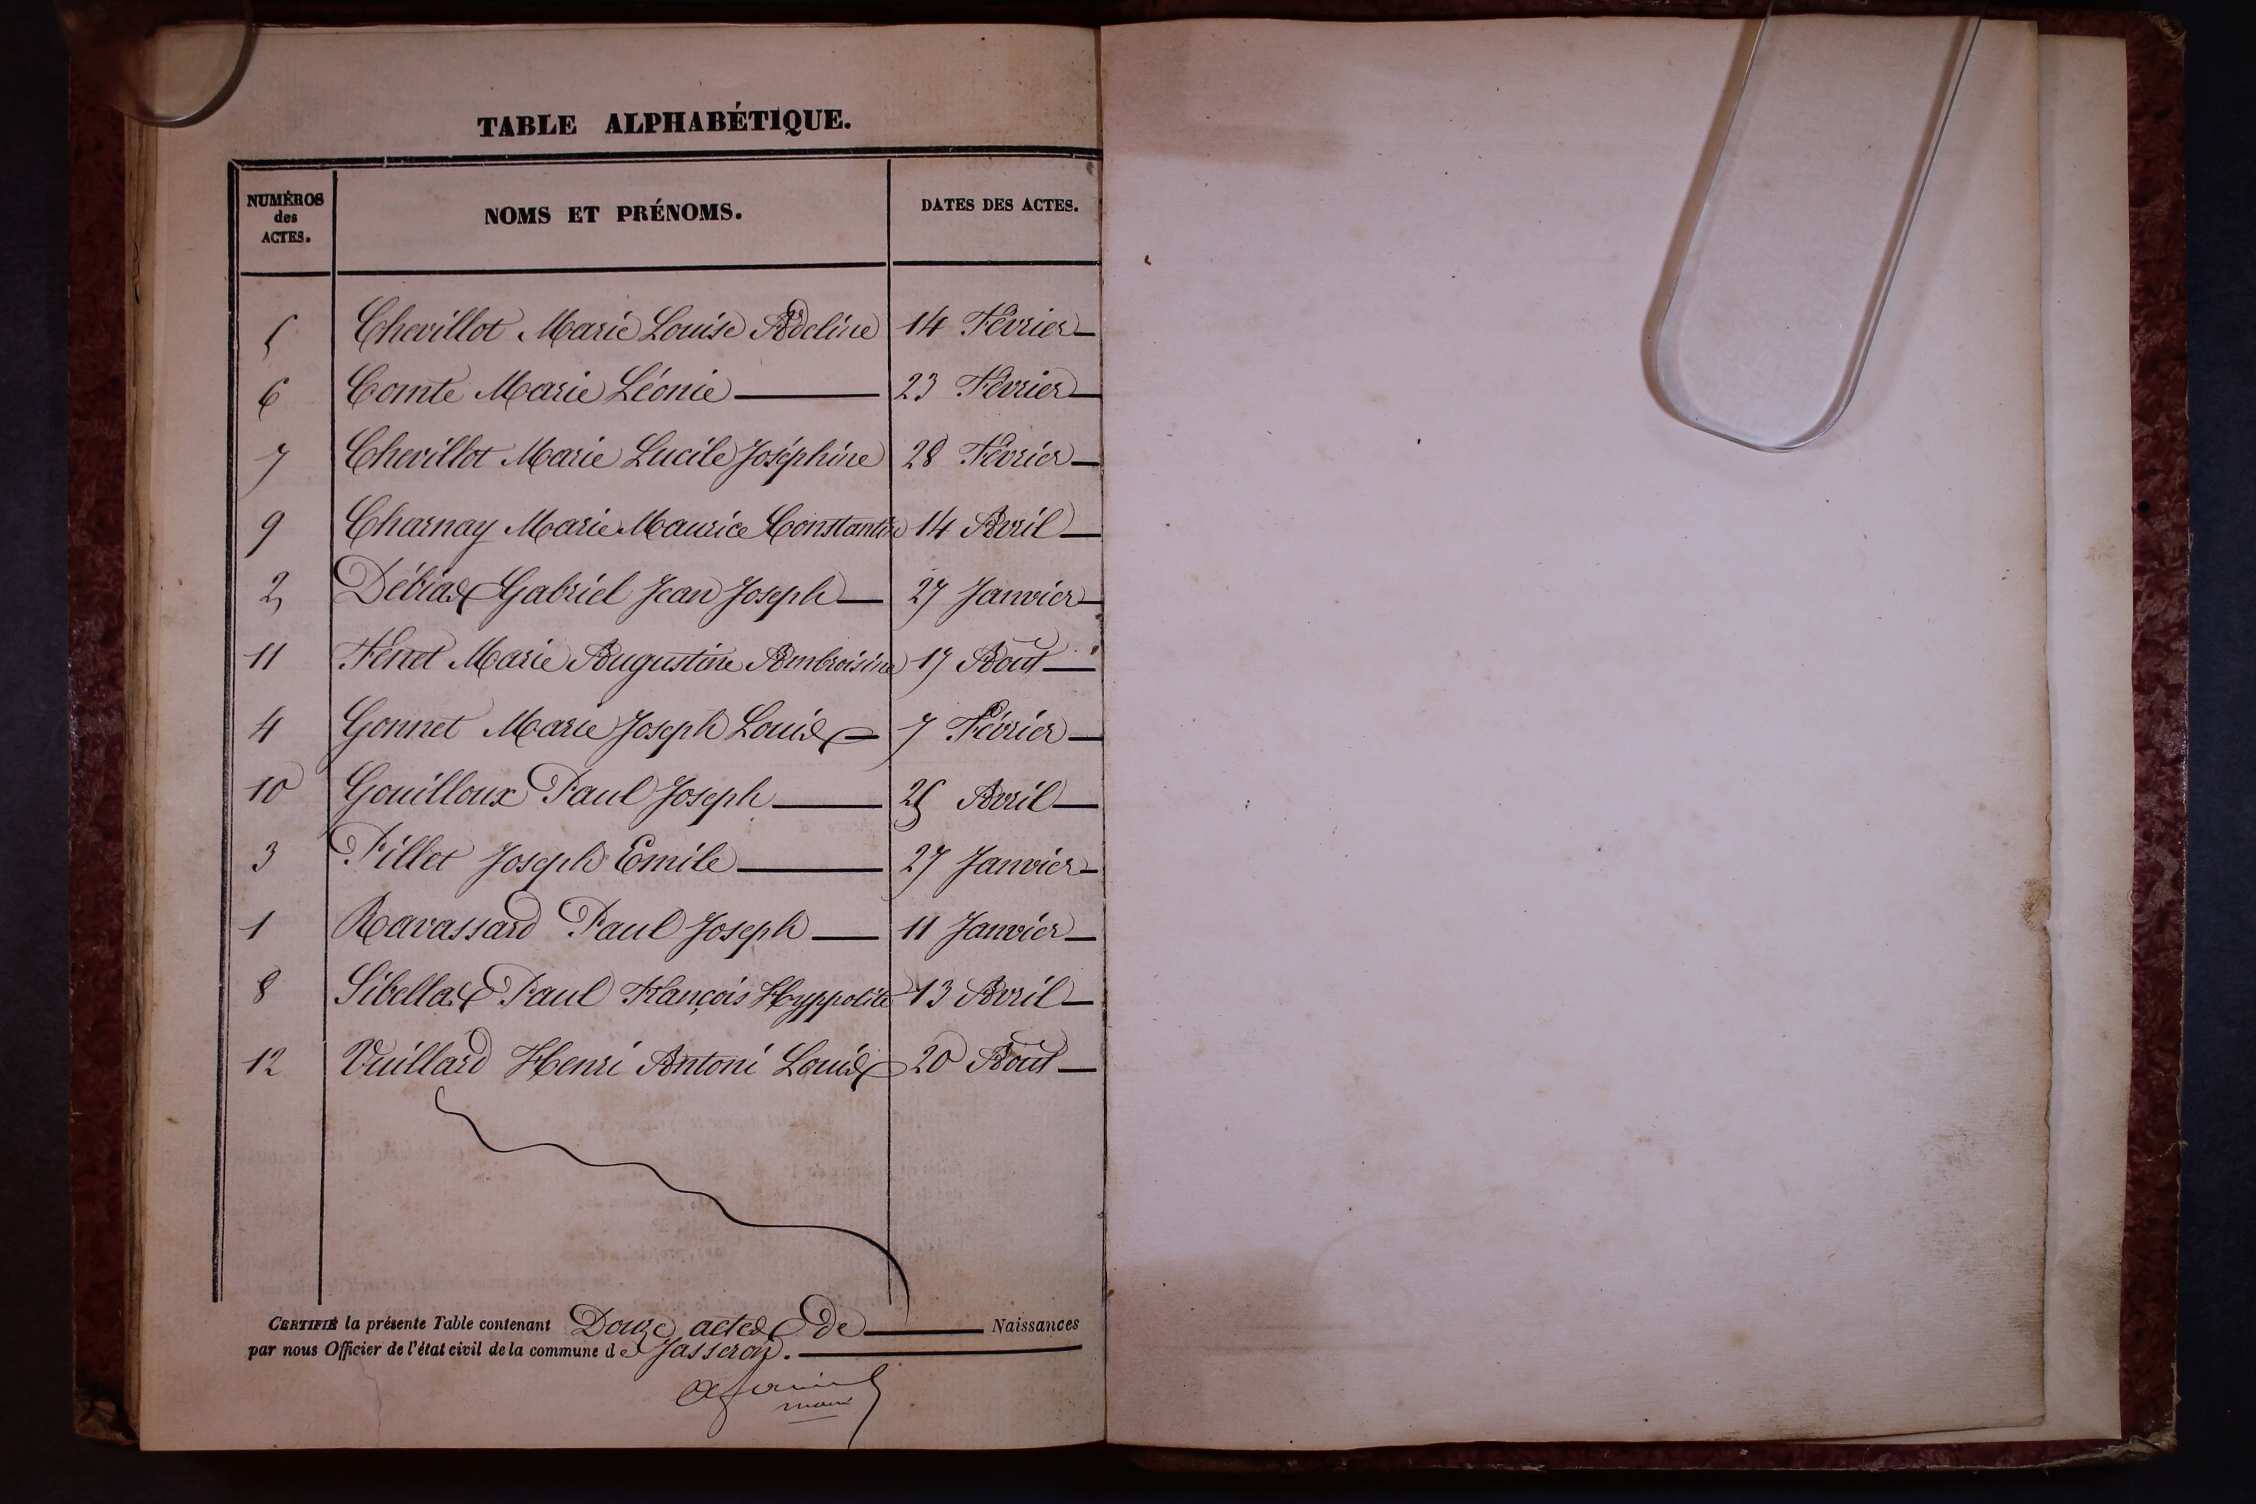 TABLE ALPHABÉTIQUE.
NUMÉROS des ACTES. NOMS ET PRÉNOMS. DATES DES ACTES.
5 Chevillot Marie Louise Adeline 14 Février
6 Comte Marie Léonie 23 Février
7 Chevillot Marie Lucile Joséphine 28 Février
9 Charnay Marie Maurice Constantin 14 Avril
2 Débias Gabriel Jean Joseph 27 Janvier
11 Fénet Marie Augustine Ambroisine 17 Aout
4 Gonnet Marie Joseph Louis 7 Février
10 Gouilloux Paul Joseph 25 Avril
3 Pillet Joseph Emile 27 Janvier
1 Ravassard Paul Joseph 11 Janvier
8 Sibellas Paul François Hyppolite 13 Avril
12 Vuillard Henri Antoni Louis 20 Aout
CERTIFIÉ la présente Table contenant Douze actes de Naissances
par nous Officier de l'état civil de la commune de Jasseron.
maire